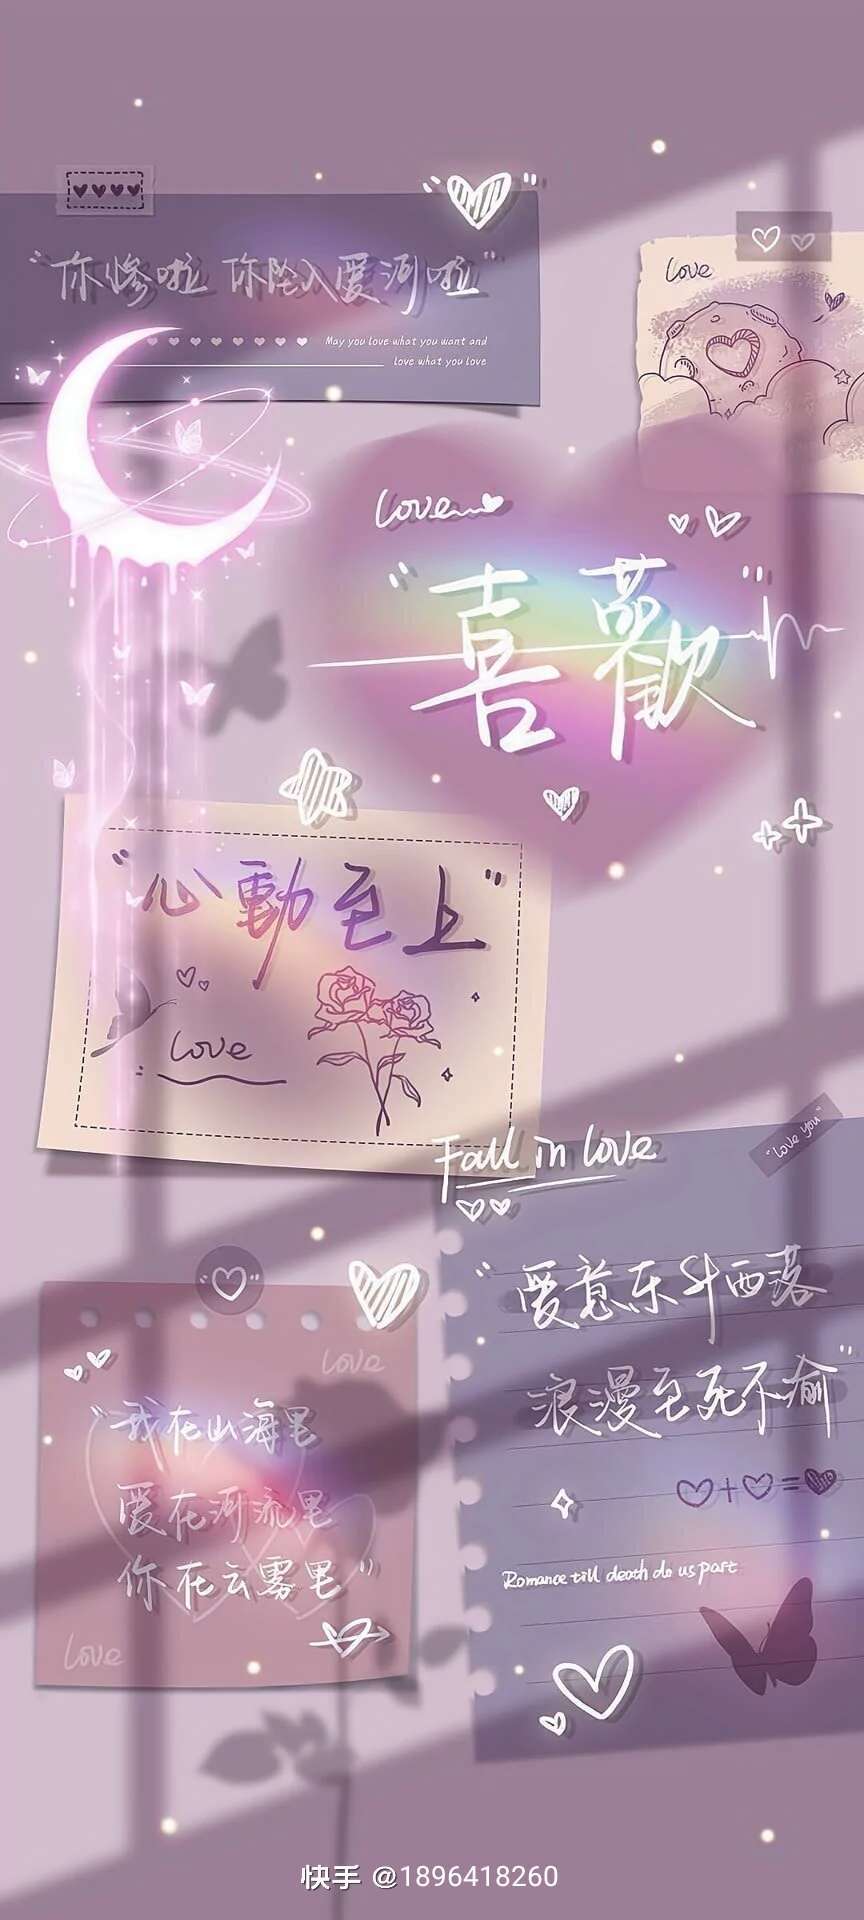 "你惨啦 你坠入爱河啦"
May you love what you want and
love what you love
love
Love
"喜歡"
"心動至上"
Love
Fall in love
"love you"
"爱意东升西落
浪漫至死不渝"
love
"我在山海里
爱在河流里
你在云雾里"
Romance till death do us part
Love
快手 @1896418260